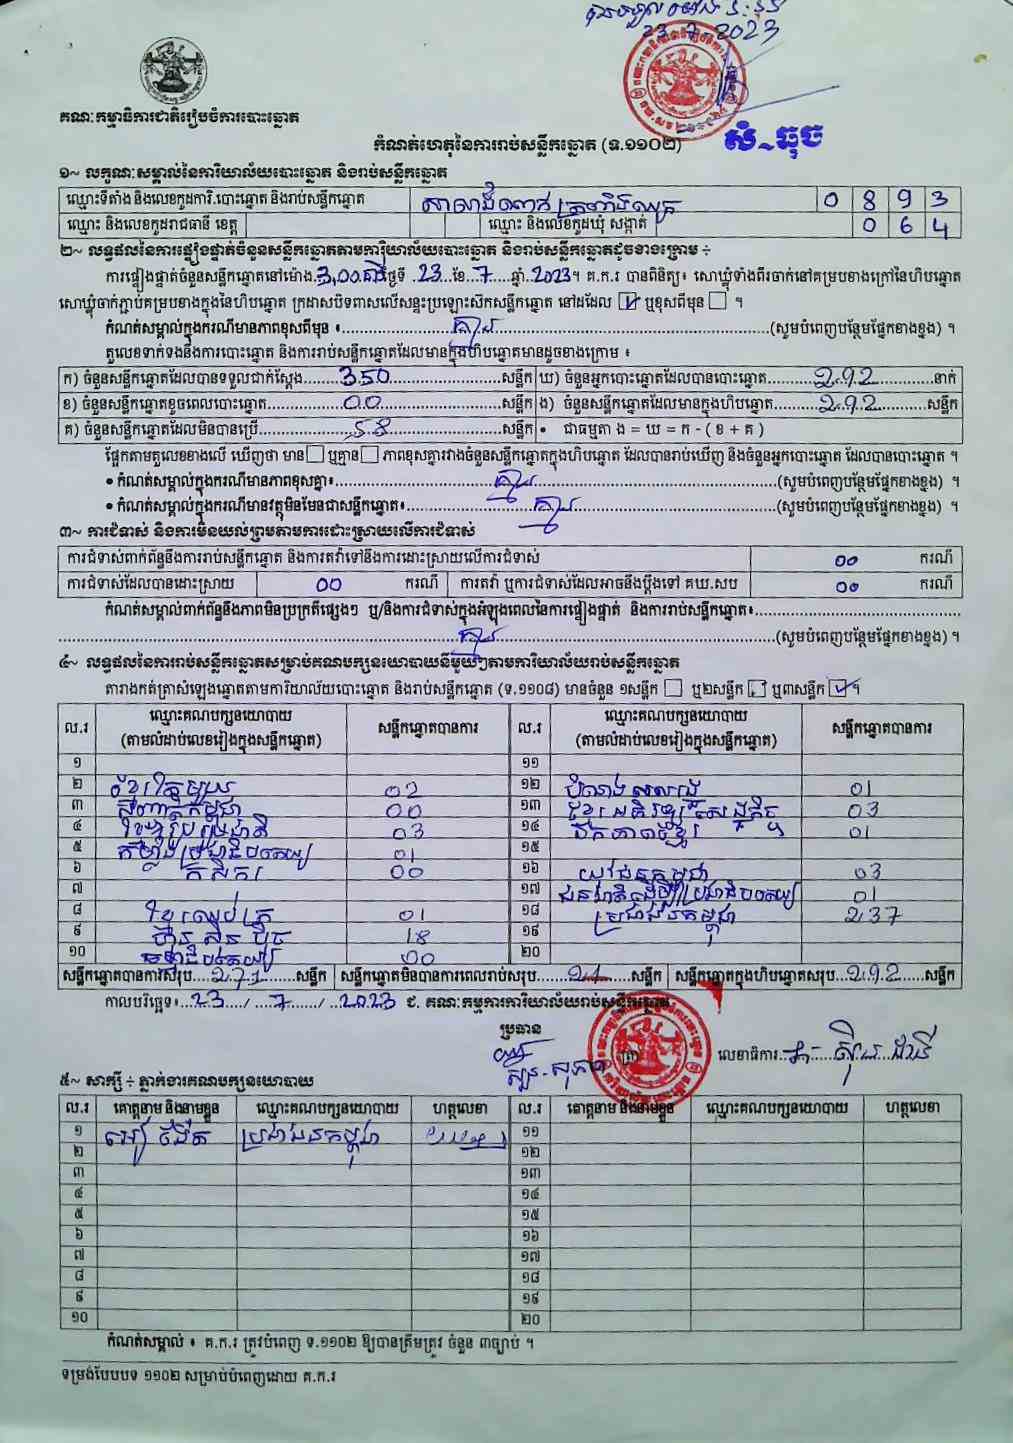 23-7-2023
គណៈកម្មាធិការជាតិរៀបចំការបោះឆ្នោត
កំណត់ហេតុនៃការរាប់សន្លឹកឆ្នោត (ទ.១១០២)
សំ~ឆុច
១~ លក្ខណៈសម្គាល់នៃការិយាល័យបោះឆ្នោត និងរាប់សន្លឹកឆ្នោត
ឈ្មោះទីតាំង និងលេខកូដការិ.បោះឆ្នោត និងរាប់សន្លឹកឆ្នោត 0 8 9 3
ឈ្មោះ និងលេខកូដរាជធានី ខេត្ត ឈ្មោះ និងលេខកូដឃុំ សង្កាត់ 0 6 4
២~ លទ្ធផលនៃការផ្ទៀងផ្ទាត់ចំនួនសន្លឹកឆ្នោតតាមការិយាល័យបោះឆ្នោត និងរាប់សន្លឹកឆ្នោតដូចខាងក្រោម ÷
ការផ្ទៀងផ្ទាត់ចំនួនសន្លឹកឆ្នោតនៅម៉ោង 3,00 នាទី ថ្ងៃទី 23 ខែ 7 ឆ្នាំ 2023។ គ.ក.រ បានពិនិត្យ៖ សោឃ្លុំទាំងពីរចាក់នៅគម្របខាងក្រៅនៃហិបឆ្នោត
សោឃ្លុំចាក់ភ្ជាប់គម្របខាងក្នុងនៃហិបឆ្នោត ក្រដាសបិទពាសលើសន្ទះប្រឡោះស៊កសន្លឹកឆ្នោត នៅដដែល ☑ ឬខុសពីមុន ☐ ។
កំណត់សម្គាល់ក្នុងករណីមានភាពខុសពីមុន ៖ គ្មាន (សូមបំពេញបន្ថែមផ្នែកខាងខ្នង) ។
តួលេខទាក់ទងនឹងការបោះឆ្នោត និងការរាប់សន្លឹកឆ្នោតដែលមានក្នុងហិបឆ្នោតមានដូចខាងក្រោម ៖
ក) ចំនួនសន្លឹកឆ្នោតដែលបានទទួលជាក់ស្តែង 350 សន្លឹក ឃ) ចំនួនអ្នកបោះឆ្នោតដែលបានបោះឆ្នោត 292 នាក់
ខ) ចំនួនសន្លឹកឆ្នោតខូចពេលបោះឆ្នោត 00 សន្លឹក ង) ចំនួនសន្លឹកឆ្នោតដែលមានក្នុងហិបឆ្នោត 292 សន្លឹក
គ) ចំនួនសន្លឹកឆ្នោតដែលមិនបានប្រើ 58 សន្លឹក • ជាធម្មតា ង = ឃ = ក - ( ខ + គ )
ផ្អែកតាមតួលេខខាងលើ ឃើញថា មាន ☐ ឬគ្មាន ☐ ភាពខុសគ្នារវាងចំនួនសន្លឹកឆ្នោតក្នុងហិបឆ្នោត ដែលបានរាប់ឃើញ និងចំនួនអ្នកបោះឆ្នោត ដែលបានបោះឆ្នោត ។
• កំណត់សម្គាល់ក្នុងករណីមានភាពខុសគ្នា៖ គ្មាន (សូមបំពេញបន្ថែមផ្នែកខាងខ្នង) ។
• កំណត់សម្គាល់ក្នុងករណីមានវត្ថុមិនមែនជាសន្លឹកឆ្នោត៖ គ្មាន (សូមបំពេញបន្ថែមផ្នែកខាងខ្នង) ។
៣~ ការជំទាស់ និងការមិនយល់ព្រមតាមការដោះស្រាយលើការជំទាស់
ការជំទាស់ពាក់ព័ន្ធនឹងការរាប់សន្លឹកឆ្នោត និងការតវ៉ាទៅនឹងការដោះស្រាយលើការជំទាស់ 00 ករណី
ការជំទាស់ដែលបានដោះស្រាយ 00 ករណី ការតវ៉ា ឬការជំទាស់ដែលអាចនឹងប្តឹងទៅ គឃ.សប 00 ករណី
កំណត់សម្គាល់ពាក់ព័ន្ធនឹងភាពមិនប្រក្រតីផ្សេងៗ ឬ/និងការជំទាស់ក្នុងអំឡុងពេលនៃការផ្ទៀងផ្ទាត់ និងការរាប់សន្លឹកឆ្នោត៖
គ្មាន (សូមបំពេញបន្ថែមផ្នែកខាងខ្នង) ។
៤~ លទ្ធផលនៃការរាប់សន្លឹកឆ្នោតសម្រាប់គណបក្សនយោបាយនីមួយៗតាមការិយាល័យរាប់សន្លឹកឆ្នោត
តារាងកត់ត្រាសំឡេងឆ្នោតតាមការិយាល័យបោះឆ្នោត និងរាប់សន្លឹកឆ្នោត (ទ.១១០៨) មានចំនួន ១សន្លឹក ☐ ឬ២សន្លឹក ☐ ឬ៣សន្លឹក ☑ ។
ល.រ ឈ្មោះគណបក្សនយោបាយ (តាមលំដាប់លេខរៀងក្នុងសន្លឹកឆ្នោត) សន្លឹកឆ្នោតបានការ ល.រ ឈ្មោះគណបក្សនយោបាយ (តាមលំដាប់លេខរៀងក្នុងសន្លឹកឆ្នោត) សន្លឹកឆ្នោតបានការ
១ ១១
២ ខ្មែរតែមួយ 02 ១២ 01
៣ សញ្ជាតិកម្ពុជា 00 ១៣ 03
៤ 03 ១៤ 01
៥ កម្លាំងប្រជាធិបតេយ្យ 01 ១៥
៦ កសិករ 00 ១៦ យុវជនកម្ពុជា 03
៧ ១៧ ជនជាតិដើមប្រជាធិបតេយ្យ 01
៨ ខ្មែរឈប់ក្រ 01 ១៨ ប្រជាជនកម្ពុជា 237
៩ ហ៊្វុនស៊ិនប៉ិច 18 ១៩
១០ 00 ២០
សន្លឹកឆ្នោតបានការសរុប 271 សន្លឹក សន្លឹកឆ្នោតមិនបានការពេលរាប់សរុប 21 សន្លឹក សន្លឹកឆ្នោតក្នុងហិបឆ្នោតសរុប 292 សន្លឹក
កាលបរិច្ឆេទ៖ 23 / 7 / 2023 ជ. គណៈកម្មការការិយាល័យរាប់សន្លឹកឆ្នោត
ប្រធាន
លេខាធិការ
៥~ សាក្សី ÷ ភ្នាក់ងារគណបក្សនយោបាយ
ល.រ គោត្តនាម និងនាមខ្លួន ឈ្មោះគណបក្សនយោបាយ ហត្ថលេខា ល.រ គោត្តនាម និងនាមខ្លួន ឈ្មោះគណបក្សនយោបាយ ហត្ថលេខា
១ ប្រជាជនកម្ពុជា ១១
២ ១២
៣ ១៣
៤ ១៤
៥ ១៥
៦ ១៦
៧ ១៧
៨ ១៨
៩ ១៩
១០ ២០
កំណត់សម្គាល់ ៖ គ.ក.រ ត្រូវបំពេញ ទ.១១០២ ឱ្យបានត្រឹមត្រូវ ចំនួន ៣ច្បាប់ ។
ទម្រង់បែបបទ ១១០២ សម្រាប់បំពេញដោយ គ.ក.រ